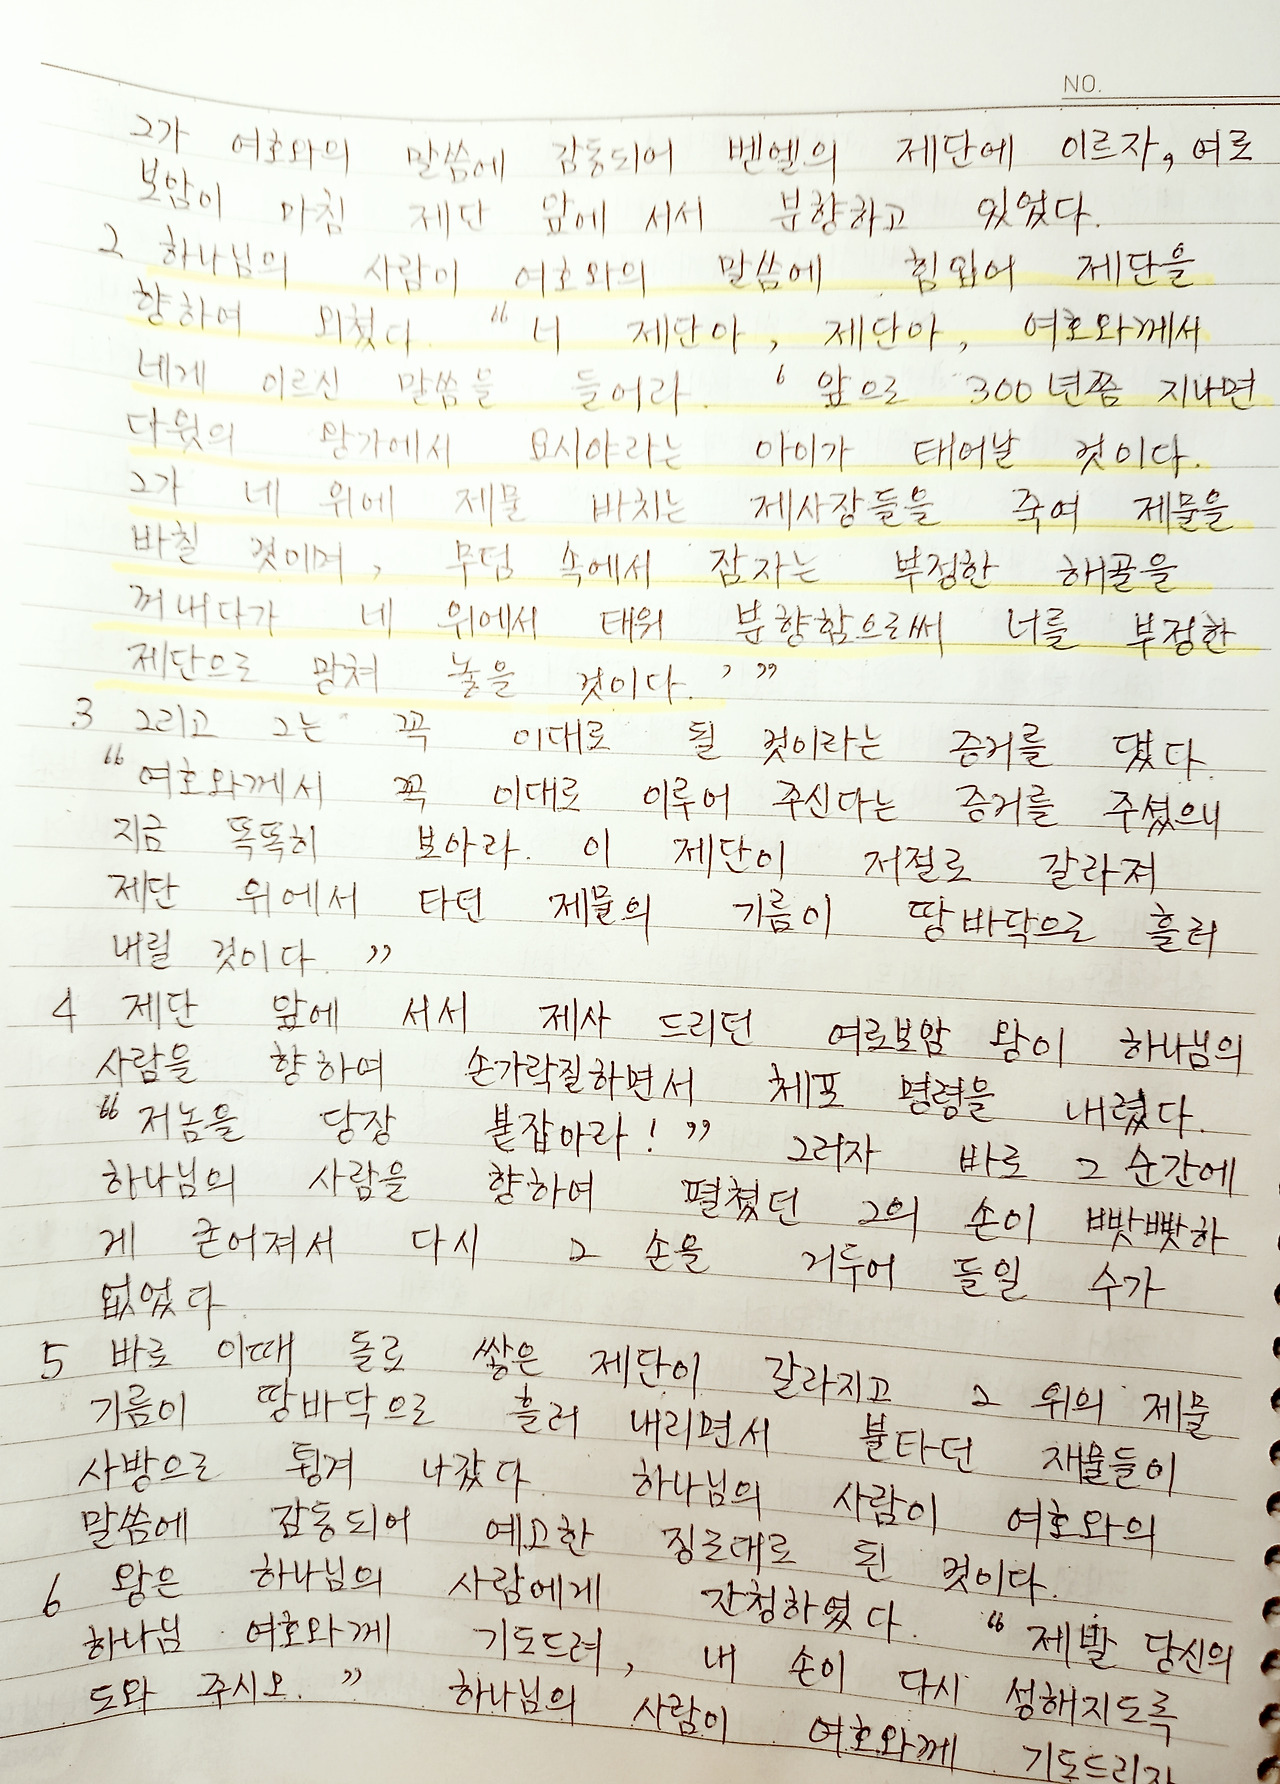 NO.
그가 여호와의 말씀에 감동되어 벧엘의 제단에 이르자, 여로
보암이 마침 제단 앞에 서서 분향하고 있었다.
2 하나님의 사람이 여호와의 말씀에 힘입어 제단을
향하여 외쳤다. “너 제단아, 제단아, 여호와께서
네게 이르신 말씀을 들어라. ‘앞으로 300년쯤 지나면
다윗의 왕가에서 요시야라는 아이가 태어날 것이다.
그가 네 위에 제물 바치는 제사장들을 죽여 제물을
바칠 것이며, 무덤 속에서 잠자는 부정한 해골을
꺼내다가 네 위에서 태워 분향함으로써 너를 부정한
제단으로 망쳐 놓을 것이다.’”
3 그리고 그는 꼭 이대로 될 것이라는 증거를 댔다.
“여호와께서 꼭 이대로 이루어 주신다는 증거를 주셨으니
지금 똑똑히 보아라. 이 제단이 저절로 갈라져
제단 위에서 타던 제물의 기름이 땅바닥으로 흘러
내릴 것이다.”
4 제단 앞에 서서 제사 드리던 여로보암 왕이 하나님의
사람을 향하여 손가락질하면서 체포 명령을 내렸다.
“저놈을 당장 붙잡아라!” 그러자 바로 그 순간에
하나님의 사람을 향하여 펼쳤던 그의 손이 빳빳하
게 굳어져서 다시 그 손을 거두어 들일 수가
없었다
5 바로 이때 돌로 쌓은 제단이 갈라지고 그 위의 제물
기름이 땅바닥으로 흘러 내리면서 불타던 재물들이
사방으로 튕겨 나갔다. 하나님의 사람이 여호와의
말씀에 감동되어 예고한 징조대로 된 것이다.
6 왕은 하나님의 사람에게 간청하였다. “제발 당신의
하나님 여호와께 기도드려, 내 손이 다시 성해지도록
도와 주시오.” 하나님의 사람이 여호와께 기도드리자